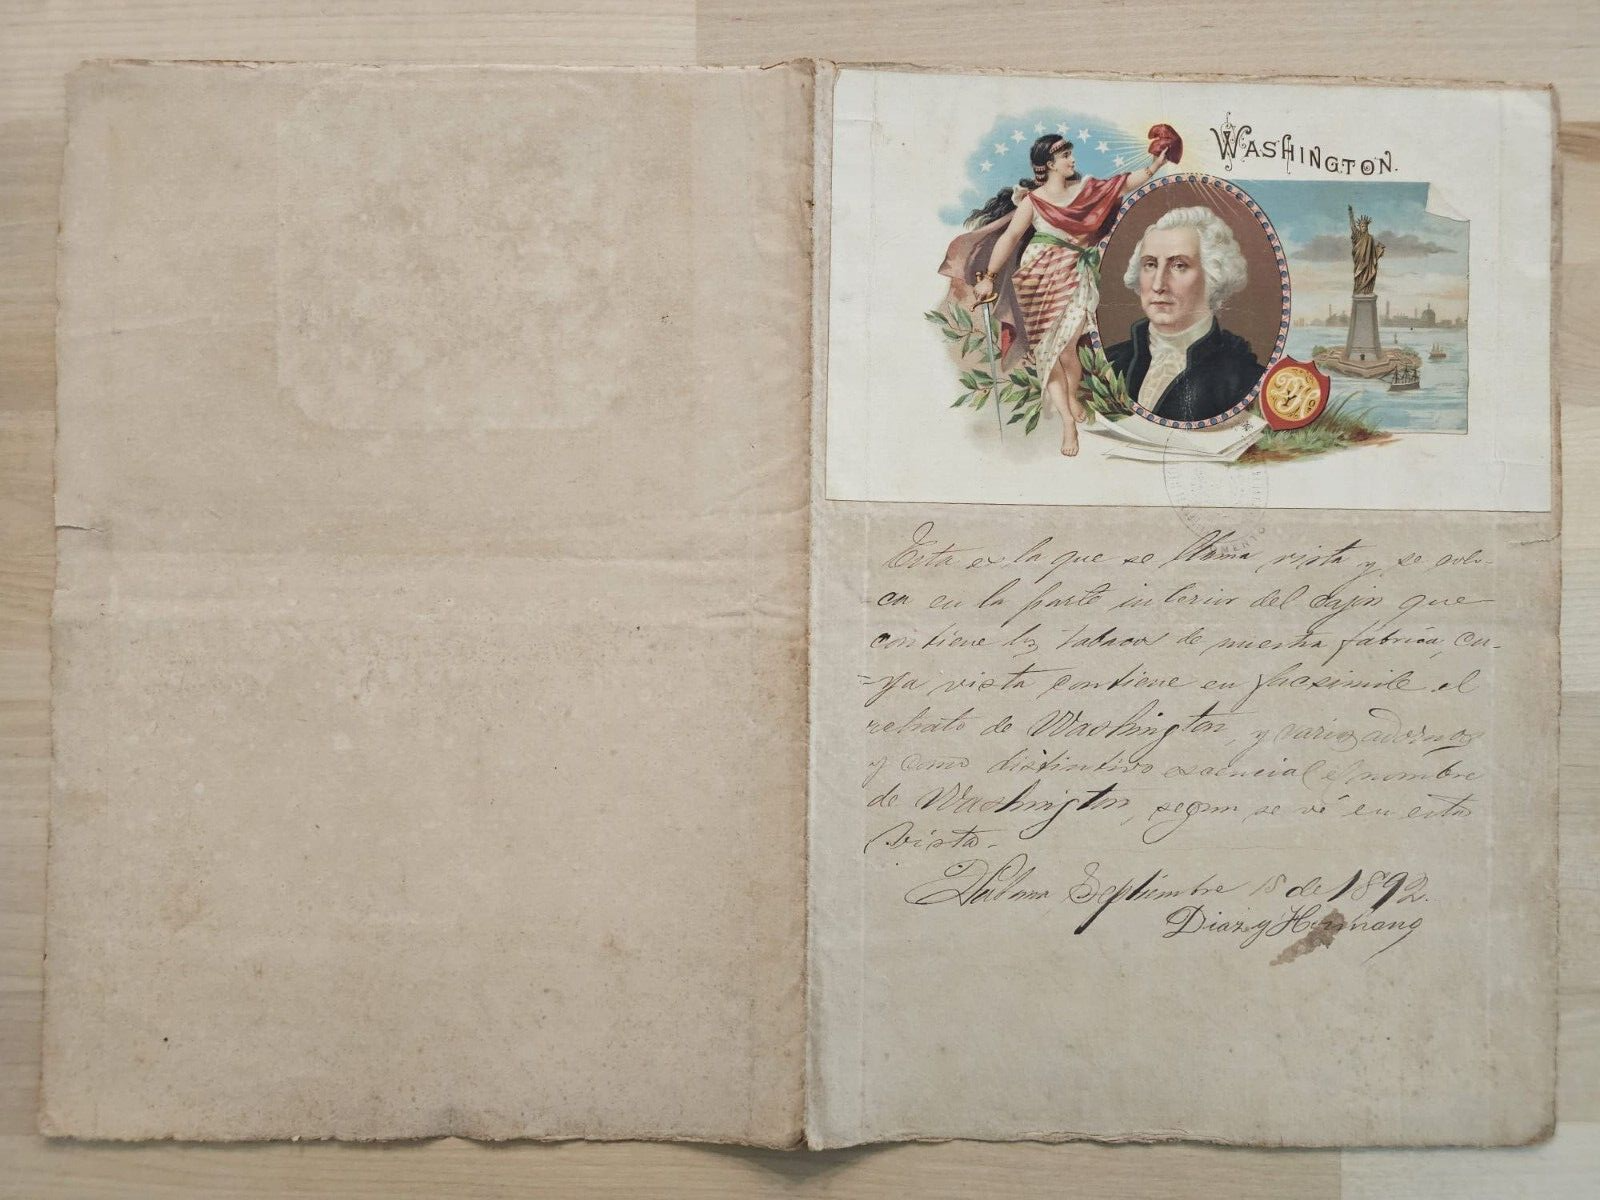 WASHINGTON.
Esta es la que se llama vista y se colo-
ca en la parte interior del cajon que
contiene los tabacos de nuestra fábrica, cu-
=ya vista contiene en facsimile el
retrato de Washington, y varios adornos
y como distintivo esencial el nombre
de Washington, segun se vé en esta
vista.
Habana Septiembre 18 de 1892.
Diaz y Hermano